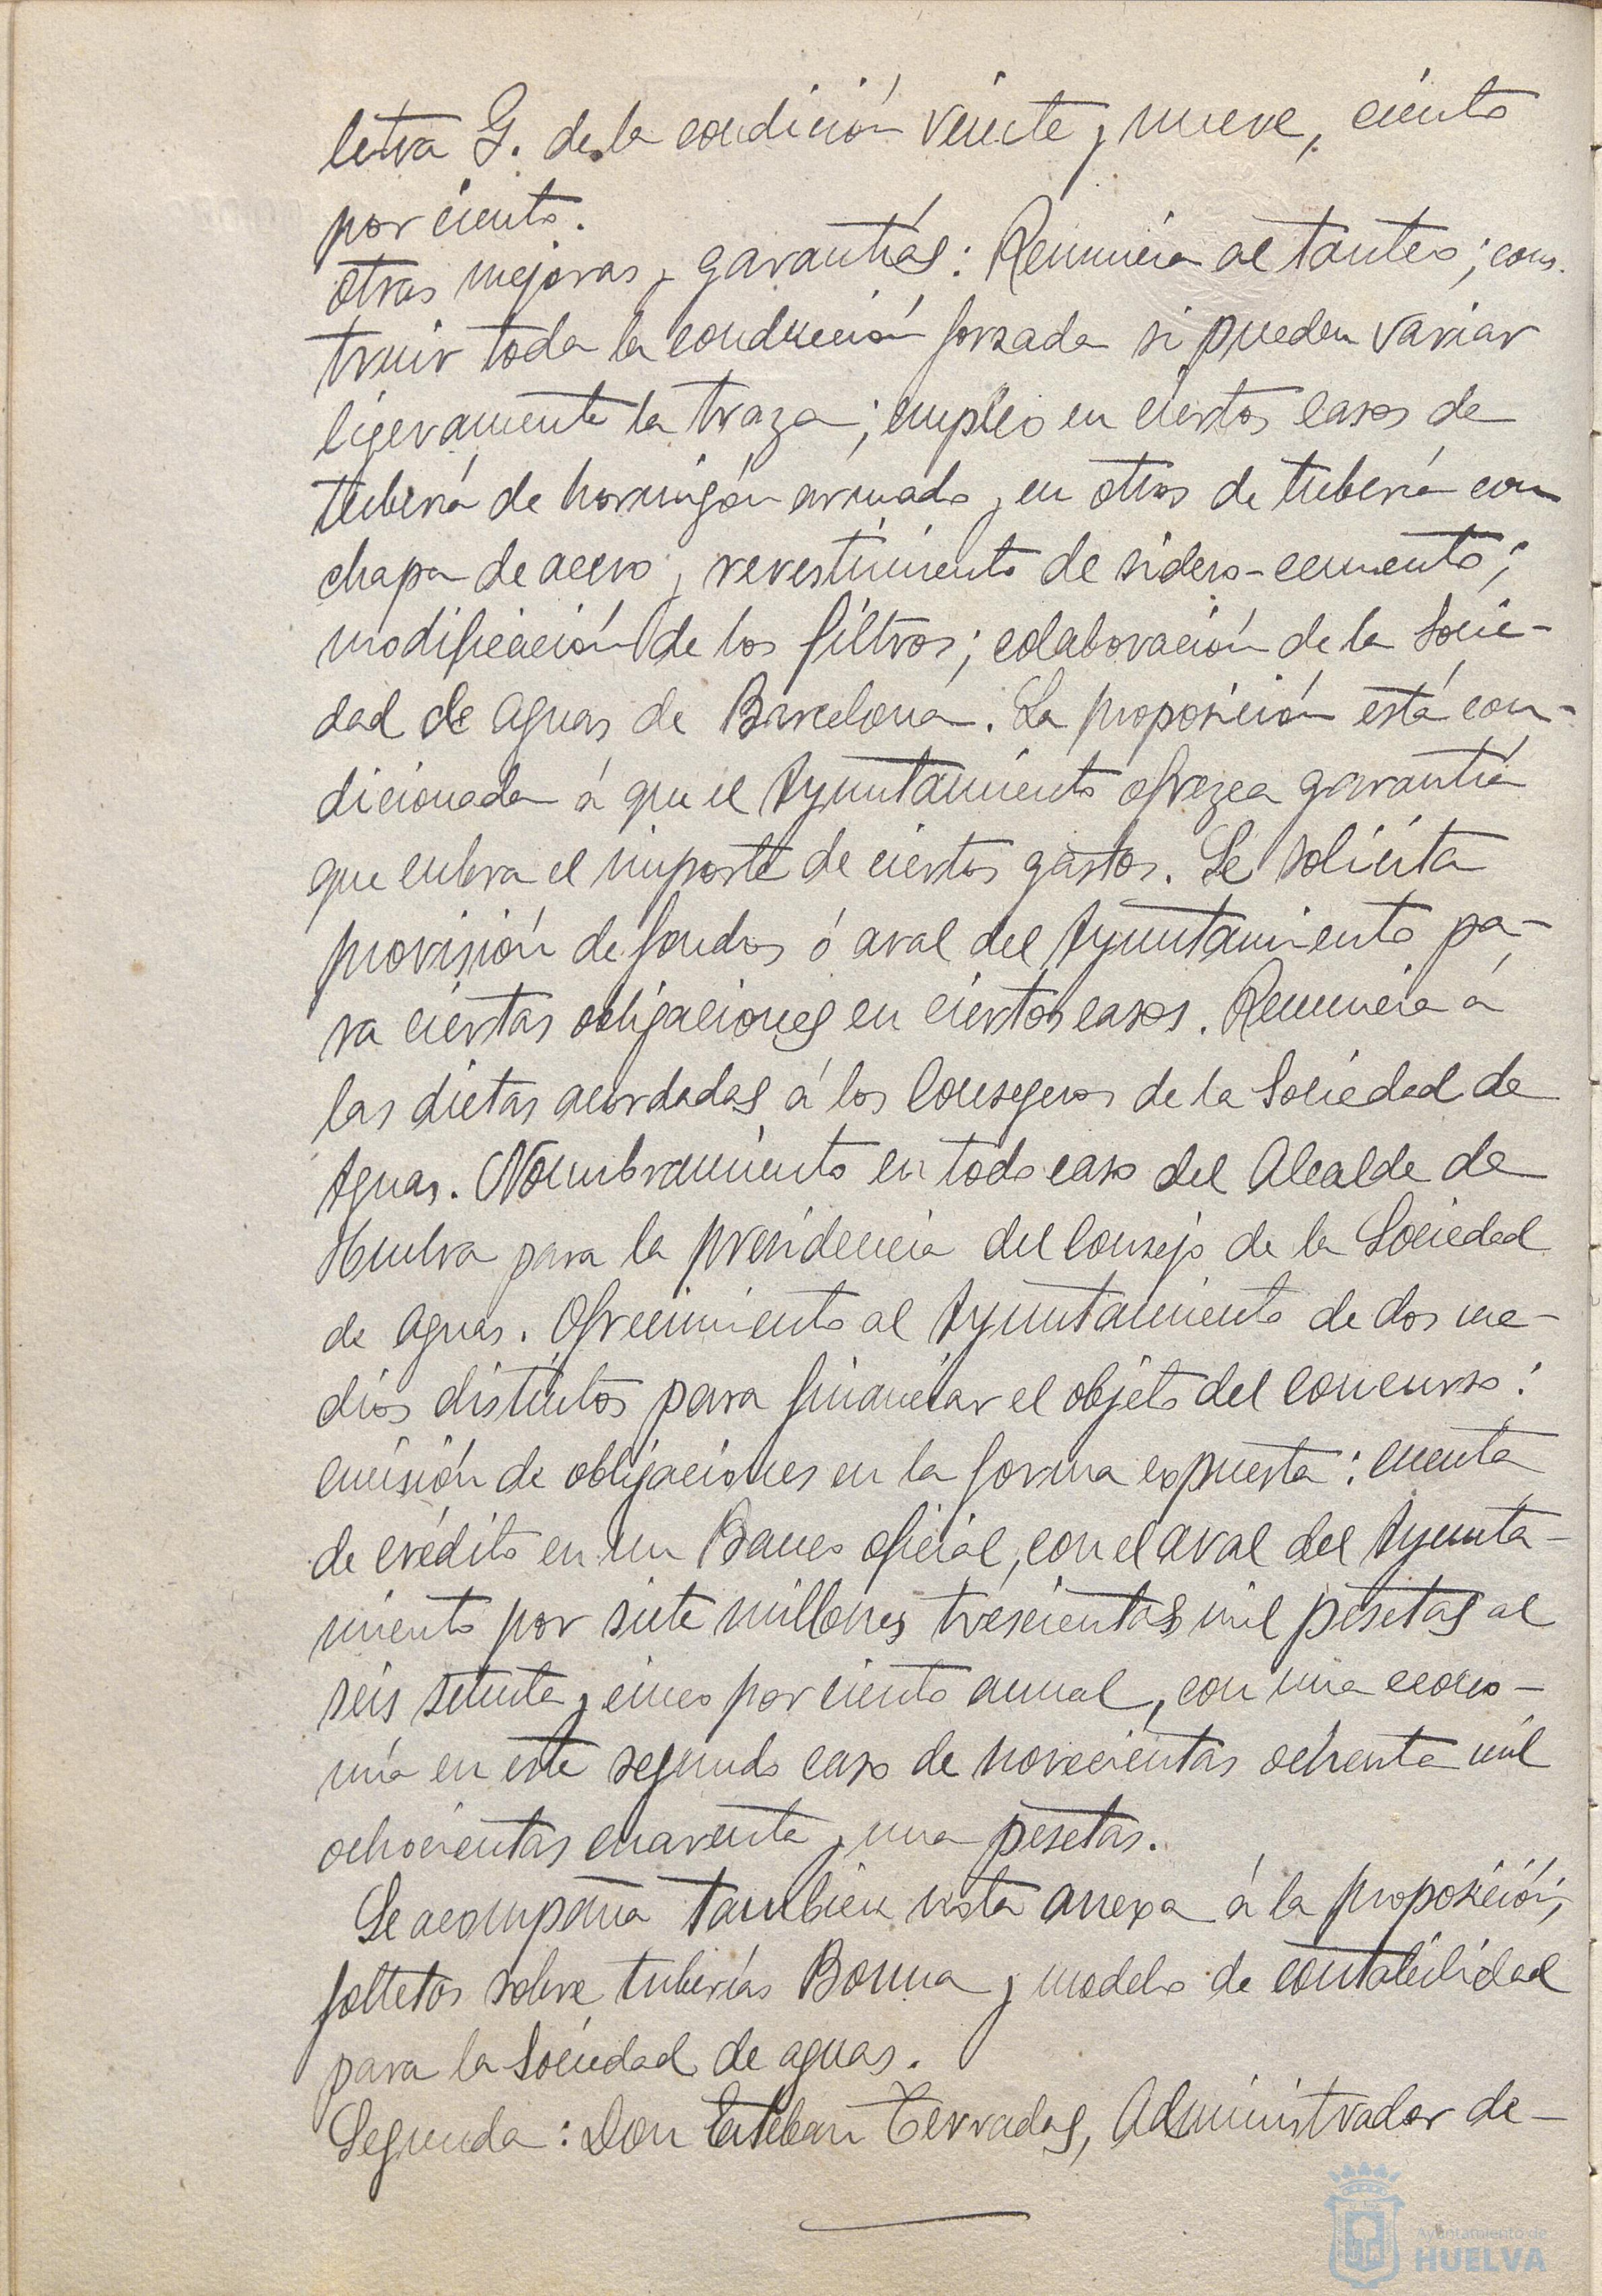 letra G. de la condición veinte y nueve, ciento
por ciento.
otras mejoras y garantías: Renuncia al tanteo; cons-
truir toda la conducción forzada si pueden variar
ligeramente la traza; empleo en ciertos casos de
tubería de hormigón armado y en otros de tubería con
chapa de acero y revestimiento de sidero-cemento;
modificación de los filtros; colaboración de la Socie-
dad de Aguas de Barcelona. La proposición está con-
dicionada á que el Ayuntamiento ofrezca garantía
que cubra el importe de ciertos gastos. Se solicita
provisión de fondos ó aval del Ayuntamiento pa-
ra ciertas obligaciones en ciertos casos. Renuncia á
las dietas acordadas á los Consegeros de la Sociedad de
Aguas. Nombramiento en todo caso del Alcalde de
Huelva para la presidencia del Consejo de la Sociedad
de Aguas. Ofrecimiento al Ayuntamiento de dos me-
dios distintos para financiar el objeto del concurso:
emisión de obligaciones en la forma expuesta: cuenta
de crédito en un Banco oficial, con el aval del Ayunta-
miento por siete millones trescientas mil pesetas al
seis setenta y cinco por ciento anual, con una econo-
mía en este segundo caso de novecientas ochenta mil
ochocientas cuarenta y una pesetas.
Se acompaña tambien nota anexa á la proposición,
folletos sobre tuberías Bonna y modelo de contabilidad
para la Sociedad de aguas.
Segunda: Don Esteban Terradas, Administrador de-
Ayuntamiento de
HUELVA